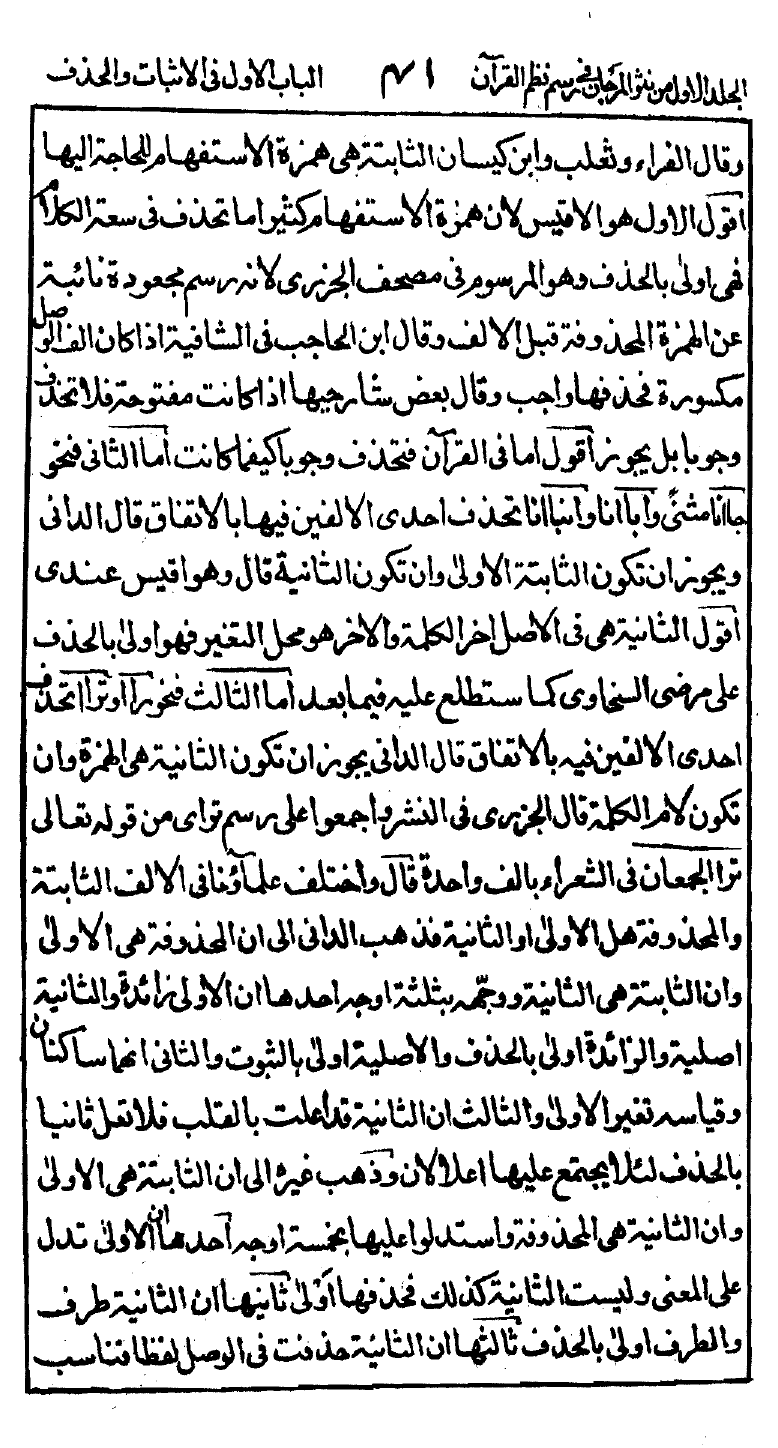 الجلد الاول من نثر المرجان في رسم نظم القرآن ٤١ الباب الاول فى الاثبات والحذف
وقال الفراء وثعلب وابن كيسان الثابتة هى همزة الاستفهام للحاجة اليها
اقول الاول هو الاقيس لان همزة الاستفهام كثيرا ما تحذف فى سعة الكلام
فهى اولىٰ بالحذف وهو المرسوم فى مصحف الجزرى لانه رسم مجعودة نائبة
عن الهمزة المحذوفة قبل الالف وقال ابن الحاجب فى الشافية اذا كان الف الوصل
مكسورة فحذفها واجب وقال بعض شارحيها اذا كانت مفتوحة فلا تحذف
وجوبا بل يجوز اقول اما فى القرآن فتحذف وجوبا كيفما كانت اما الثانى فنحو
جاانا مثنىً وأباانا وانباانا تحذف احدى الالفين فيها بالاتفاق قال الدانى
ويجوز ان تكون الثابتة الاولىٰ وان تكون الثانية قال وهو اقيس عندى
اقول الثانية هى فى الاصل اٰخر الكلمة والاٰخر هو محل التغير فهو اولىٰ بالحذف
على مرضى السخاوى كما ستطلع عليه فيما بعد اما الثالث فنحو راا وترااا تحذف
احدى الالفين فيه بالاتفاق قال الدانى يجوز ان تكون الثانية هى الهمزة وان
تكون لام الكلمة قال الجزرى فى النشر واجمعوا على رسم تراى من قوله تعالى
تراا الجمعان فى الشعراء بالف واحدة قال واختلف علماؤنا فى الالف الثابتة
والمحذوفة هل الاولىٰ او الثانية فذهب الدانى الى ان المحذوفة هى الاولىٰ
وان الثابتة هى الثانية ووجّهه بثلثة اوجه احدها ان الاولىٰ زائدة والثانية
اصلية والزائدة اولىٰ بالحذف والاصلية اولىٰ بالثبوت والثانى انهما ساكنان
وقياسه تغير الاولىٰ والثالث ان الثانية قد اعلت بالقلب فلا تعل ثانيا
بالحذف لئلا يجتمع عليها اعلالان وذهب غيره الى ان الثابتة هى الاولىٰ
وان الثانية هى المحذوفة واستدلوا عليها بخمسة اوجه احدها ان الاولىٰ تدل
على المعنى وليست الثانية كذلك فحذفها اولىٰ ثانيها ان الثانية طرف
والطرف اولىٰ بالحذف ثالثها ان الثانية حذفت فى الوصل لفظا فناسب